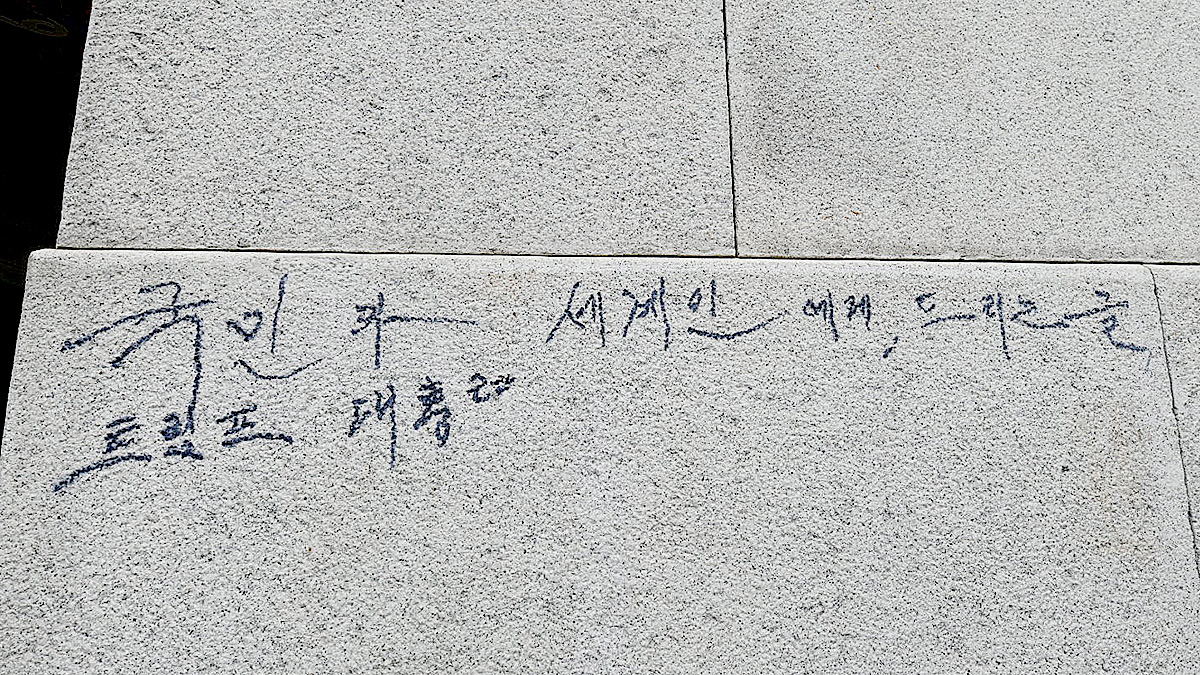 국민과 세계인에게, 드리는 글,
트럼프 대통